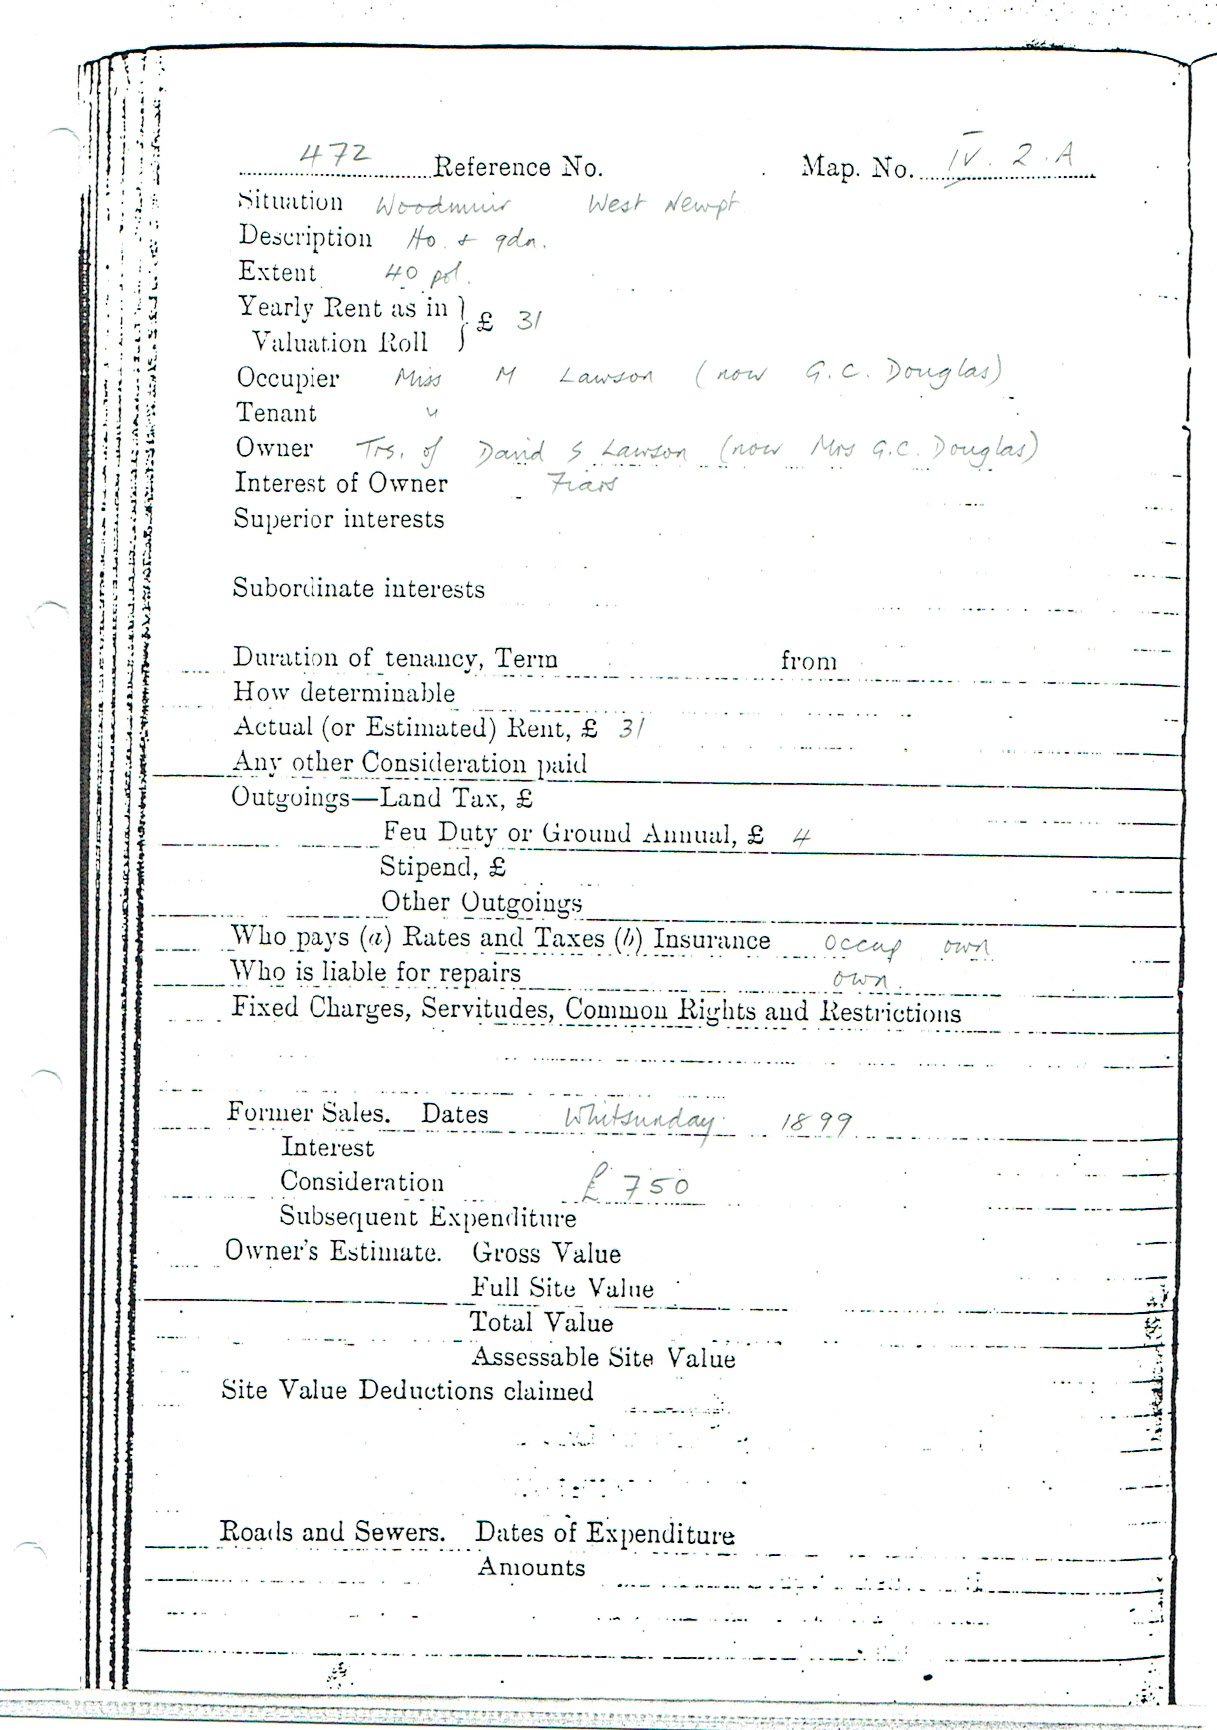 472 Reference No. Map. No. IV. 2. A
Situation Woodmuir West Newpt
Description Ho. & gdn.
Extent 40 pol.
Yearly Rent as in
Valuation Roll } £ 31
Occupier Miss M Lawson (now G.C. Douglas)
Tenant "
Owner Trs. of David S Lawson (now Mrs G.C. Douglas)
Interest of Owner Fiars
Superior interests
Subordinate interests
Duration of tenancy, Term from
How determinable
Actual (or Estimated) Rent, £ 31
Any other Consideration paid
Outgoings—Land Tax, £
Feu Duty or Ground Annual, £ 4
Stipend, £
Other Outgoings
Who pays (a) Rates and Taxes (b) Insurance occup own
Who is liable for repairs own.
Fixed Charges, Servitudes, Common Rights and Restrictions
Former Sales. Dates Whitsunday 1899
Interest
Consideration £750
Subsequent Expenditure
Owner's Estimate. Gross Value
Full Site Value
Total Value
Assessable Site Value
Site Value Deductions claimed
Roads and Sewers. Dates of Expenditure
Amounts